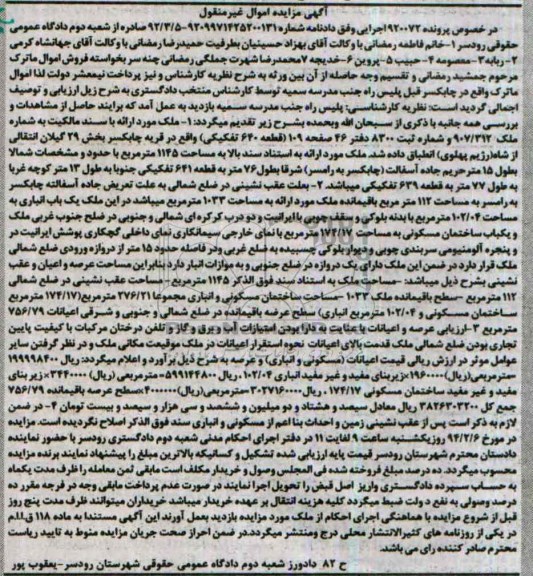 آگهی مزایده اموال غیرمنقول
در خصوص پرونده ۹۲۰۰۷۲ اجرایی وفق دادنامه شماره ۹۲۰۹۹۷۱۴۲۵۲۰۰۱۳۱-۹۲/۴/۵ صادره از شعبه دوم دادگاه عمومی
حقوقی رودسر ۱-خانم فاطمه رمضانی با وکالت آقای بهزاد حسینیان بطرفیت حمیدرضا رمضانی با وکالت آقای جهانشاه کرمی
۲-ربابه ۳-معصومه ۴-حبیب ۵-پروین ۶-خدیجه ۷محمدرضا شهرت جملگی رمضانی چنه سر بخواسته فروش اموال ماترک
مرحوم جمشید رمضانی و تقسیم وجه حاصله از آن بین ورثه به شرح نظریه کارشناس و نیز پرداخت نیمعشر دولت لذا اموال
ماترک واقع در چابکسر قبل پلیس راه جنب مدرسه سمیه توسط کارشناس منتخب دادگستری به شرح زیل ارزیابی و توصیف
اجمالی گردید است: نظریه کارشناسی: پلیس راه جنب مدرسه سمیه بازدید به عمل آمد که برایند حاصل از مشاهدات و
بررسی همه جانبه با ذکری از سبحان الله وبحمده بشرح زیر تقدیم میگردد: ۱- ملک مورد ارائه با سند مالکیت به شماره
ملک ۹۰۷/۳۱۲ و شماره ثبت ۸۳۰۰ دفتر ۴۶ صفحه ۱۰۹ (قطعه ۶۴۰ تفکیکی) واقع در قریه چابکسر بخش ۲۹ گیلان انتقالی
از شاه(رژیم پهلوی) انطباق داده شد. ملک مورد ارائه به استناد سند بالا به مساحت ۱۱۴۵ مترمربع با حدود و مشخصات شمالا
بطول ۱۵ متر حریم جاده آسفالت (چابکسر به رامسر) شرقا بطول ۷۶ متر به قطعه ۶۴۱ تفکیکی جنوبا به طول ۱۳ متر کوچه غربا
به طول ۷۷ متر به قطعه ۶۳۹ تفکیکی میباشد. ۲- بعلت عقب نشینی در ضلع شمالی به علت تعریض جاده آسفالته چابکسر
به رامسر به مساحت ۱۱۲ متر مربع باقیمانده ملک مورد ارائه به مساحت ۱۰۳۳ مترمربع میباشد در این ملک یک باب انباری به
مساحت ۱۰۲/۰۴ مترمربع با بدنه بلوکی و سقف چوبی با ایرانیت و دو درب کرکره ای شمالی و جنوبی در ضلع جنوب غربی ملک
و یکباب ساختمان مسکونی به مساحت ۱۷۴/۱۷ مترمربع با نمای خارجی سیمانکاری نمای داخلی گچکاری پوشش ایرانیت در
و پنجره آلومنیومی سربندی چوبی و دیوار بلوکی چسبیده به ضلع غربی و در فاصله حدود ۱۵ متر از دروازه ورودی ضلع شمالی
ملک قرار دارد در ضمن این ملک دارای یک دروازه در ضلع جنوبی و به موازات انبار دارد بنابراین مساحت عرصه و اعیان و عقب
نشینی بشرح ذیل میباشد: -مساحت ملک به استناد سند فوق الذکر ۱۱۴۵ مترمربع -مساحت عقب نشینی در ضلع شمالی
۱۱۲ مترمربع -سطح باقیمانده ملک ۱۰۳۳ -مساحت ساختمان مسکونی و انباری مجموعا ۲۷۶/۲۱ مترمربع(۱۷۴/۱۷ مترمربع
ساختمان مسکونی و ۱۰۲/۰۴ مترمربع انباری) سطح عرصه باقیمانده در ضلع شمالی و جنوبی و شرقی اعیانات ۷۵۶/۷۹
مترمربع ۳-ارزیابی عرصه و اعیانات با عنایت به دارا بودن امتیازات آب و برق و گاز و تلفن درختان مرکبات با کیفیت پایین
تجاری بودن ضلع شمالی ملک قدمت بالای اعیانات نحوه استقرار اعیانات در ملک موقیعت مکانی ملک و در نظر گرفتن سایر
عوامل موثر در ارزش ریالی قیمت اعیانات (مسکونی و انباری) و عرصه به شرح ذیل برآورد و اعلام میگردد: ریال ۱۹۹۹۹۸۴۰۰
=مترمربعی(ریال)۱۹۶۰۰۰۰×زیربنای مفید و غیر مفید انباری ۱۰۲/۰۴، ریال ۵۹۹۱۴۴۸۰۰=مترمربعی (ریال) ۳۴۴۰۰۰۰×زیر بنای
مفید و غیر مفید ساختمان مسکونی ۱۷۴/۱۷، ریال ۳۰۲۷۱۶۰۰۰۰=مترمربعی(ریال)۴۰۰۰۰۰۰×سطح عرصه باقیمانده ۷۵۶/۷۹
جمع کل ۳۸۲۶۳۰۳۲۰۰ ریال معادل سیصد و هشتاد و دو میلیون و ششصد و سی هزار و سیصد و بیست تومان ۴- در ضمن
لازم به ذکر است پس از عقب نشینی زمین و احداث بنا اعم از مسکونی و انباری سند فوق الذکر اصلاح نگردیده است. مزایده
در مورخ ۹۴/۲/۶ روز یکشنبه ساعت ۹ لغایت ۱۱ در دفتر اجرای احکام مدنی شعبه دوم دادگستری رودسر با حضور نماینده
دادستان محترم شهرستان رودسر قیمت پایه ارزیابی شده تشکیل و کسانیکه بالاترین مبلغ را پیشنهاد نمایند برنده مزایده
محسوب میگردد. ده درصد مبلغ فروخته شده فی المجلس وصول و خریدار مکلف است مابقی ثمن معامله را ظرف مدت یکماه
به حساب سپرده دادگستری واریز اصل قبض را تحویل اجرا نمایند در صورت عدم پرداخت مابقی وجه در فرجه مقرر ده
درصد وصولی به نفع دولت ضبط میگردد کلیه هزینه انتقال بر عهده خریدار میباشد خریداران میتوانند ظرف مدت پنج روز
قبل از شروع مزایده با هماهنگی اجرای احکام از ملک مورد مزایده بازدید بعمل آورند این آگهی مستندا به ماده ۱۱۸ ق.ا.ا.م
در یکی از روزنامه های کثیرالانتشار محلی درج ومنتشر میگردد. در ضمن احراز صحت جریان مزایده منوط به تایید ریاست
محترم صادر کننده رای می باشد.
ح ۸۲ دادورز شعبه دوم دادگاه عمومی حقوقی شهرستان رودسر-یعقوب پور